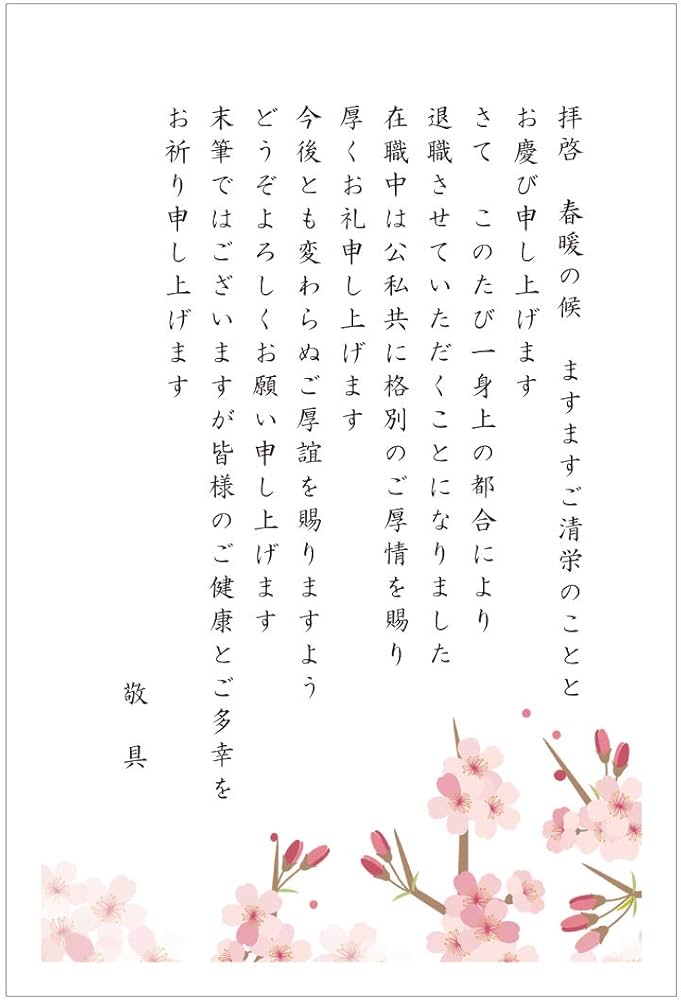 拝啓　春暖の候　ますますご清栄のことと
お慶び申し上げます
さて　このたび一身上の都合により
退職させていただくことになりました
在職中は公私共に格別のご厚情を賜り
厚くお礼申し上げます
今後とも変わらぬご厚誼を賜りますよう
どうぞよろしくお願い申し上げます
末筆ではございますが皆様のご健康とご多幸を
お祈り申し上げます
敬　具